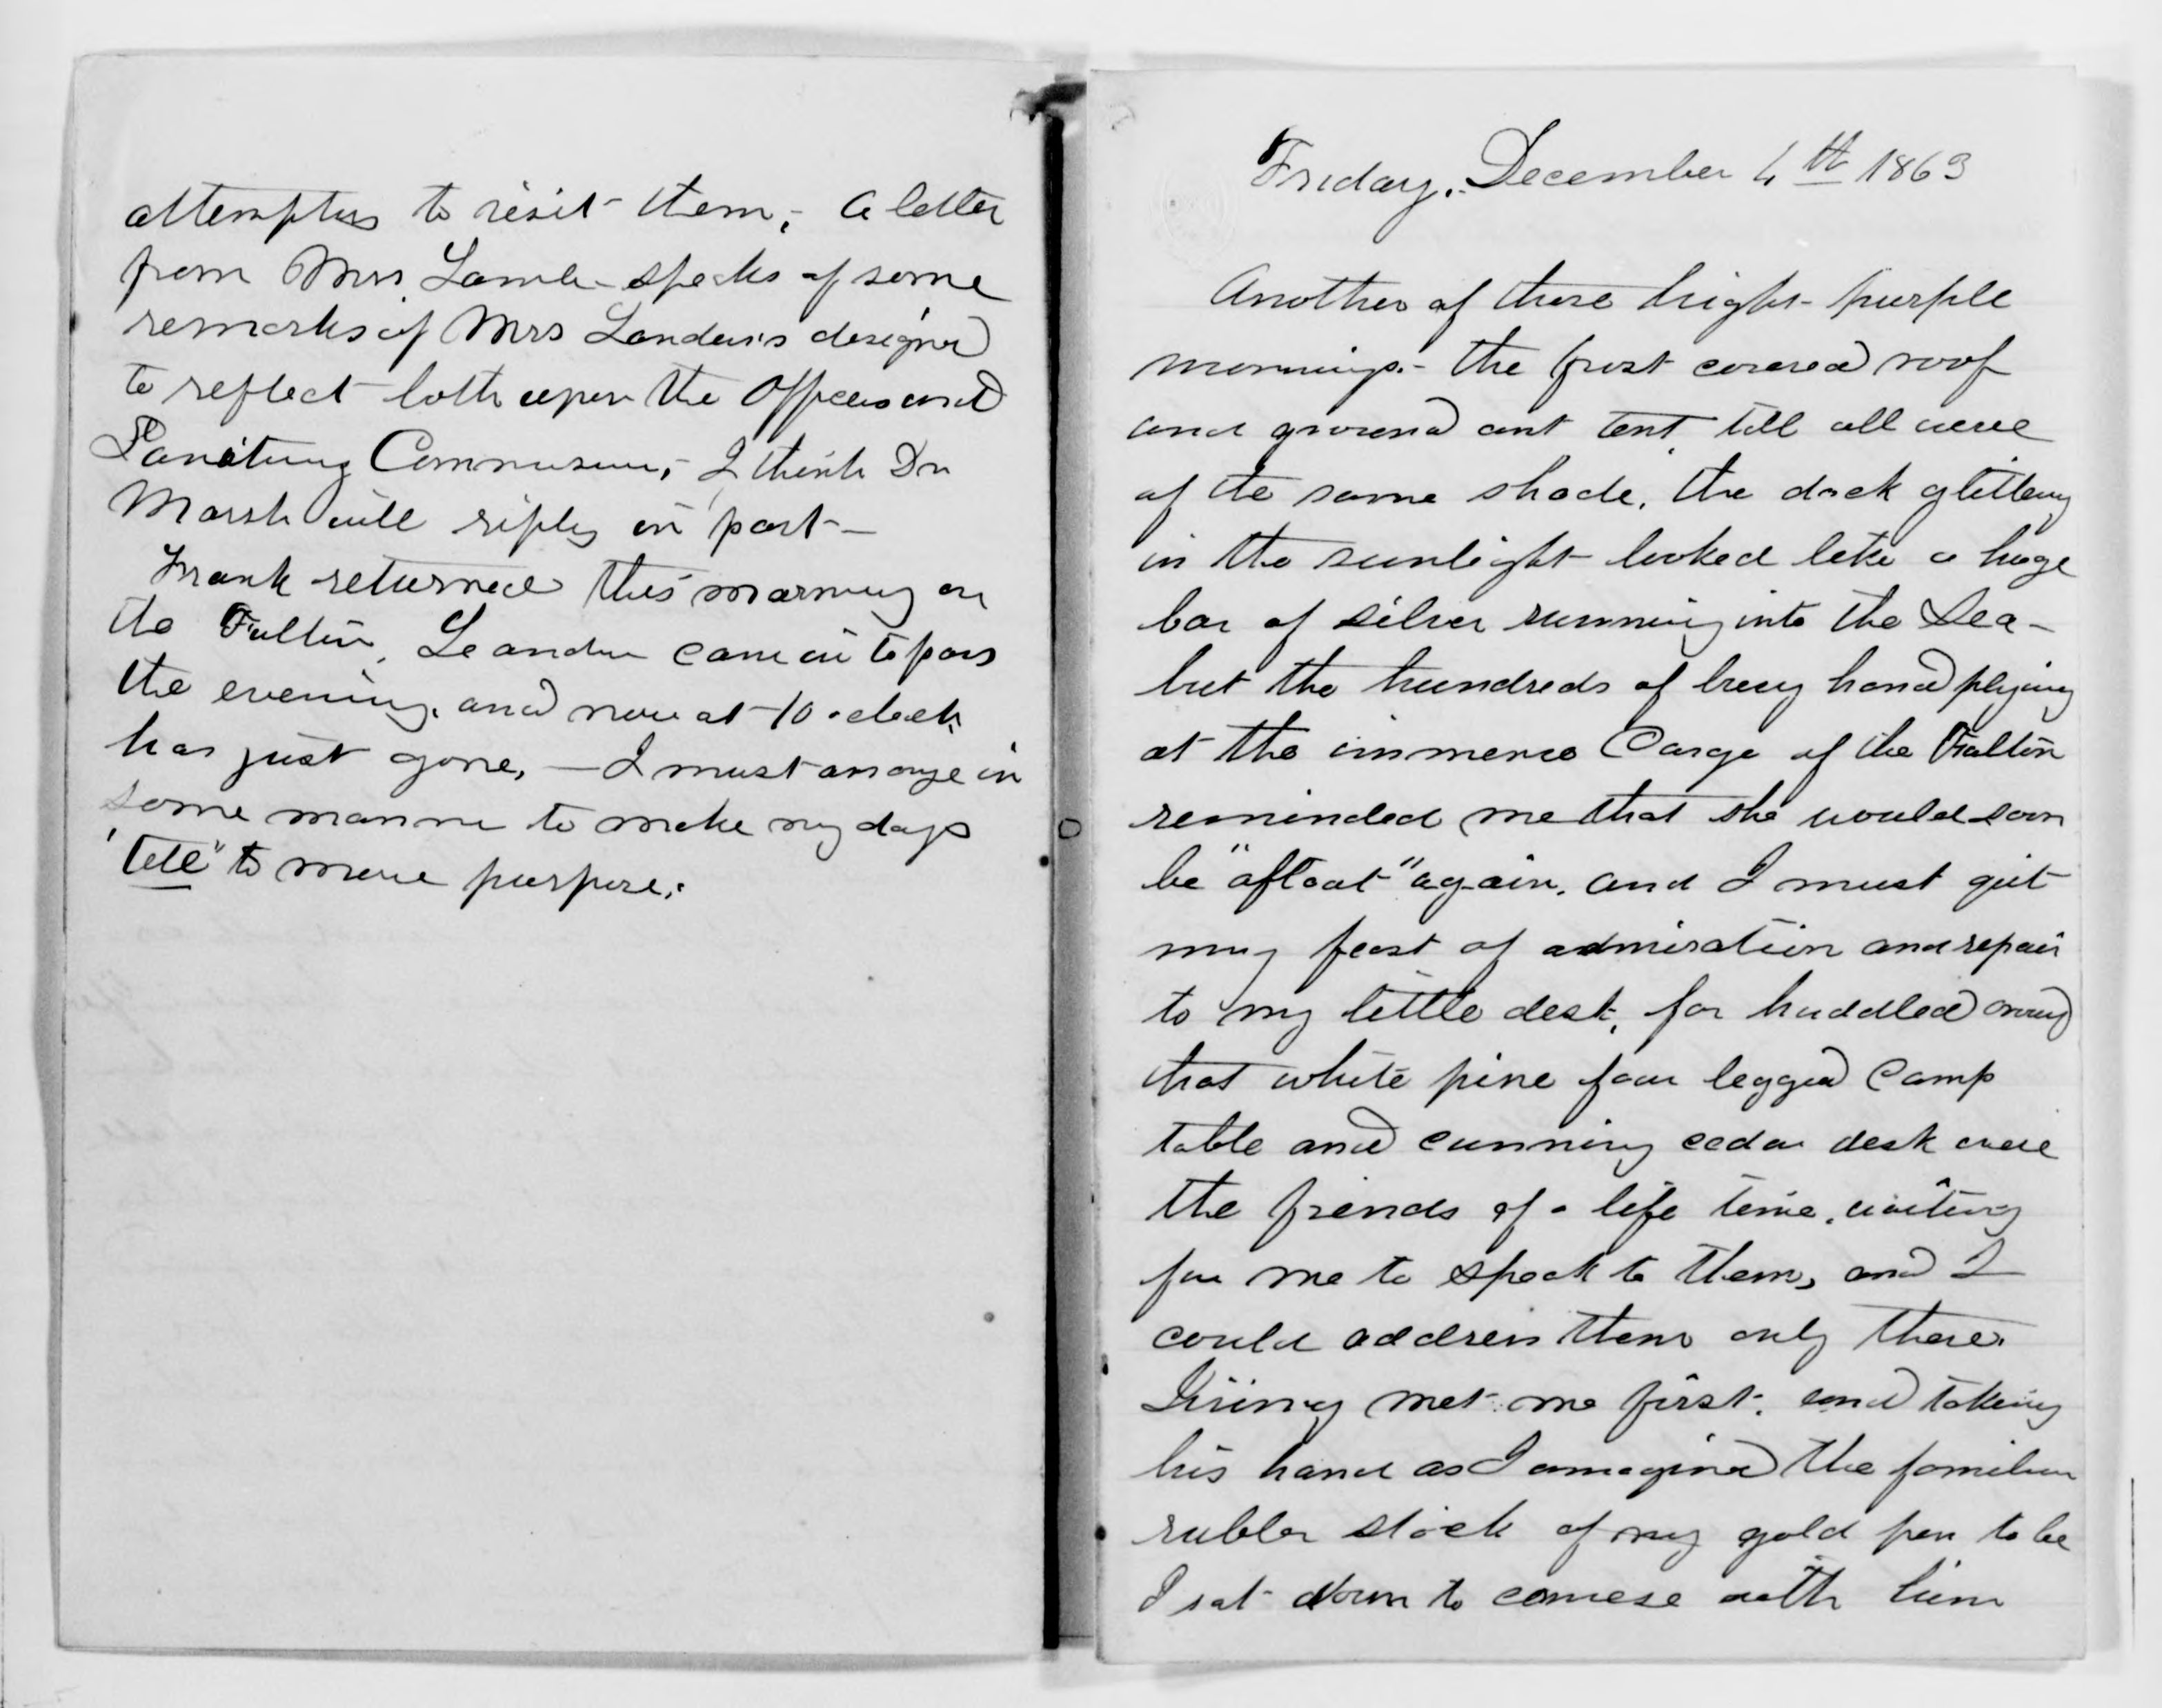 attempts to visit them,- A letter
from Mrs. Lamb speaks of some
remarks of Mrs Lander's designed
to reflect both upon the Officers and
Sanitary Commission,- I think Dr
Marsh will reply in part-
Frank returned this morning on
the Fulton, Leander came in to pass
the evening, and now at 10 oclock
has just gone, - I must arrange in
some manner to make my days
"tell" to more purpose.
Friday. December 4th 1863
Another of these bright purple
mornings.- the frost covered roof
and ground and tent, till all were
of the same shade, the dock glittering
in the sunlight looked like a huge
bar of silver running into the Sea-
but the hundreds of busy hands plying
at the immense Cargo of the Fulton
reminded me that she would soon
be "afloat" again, and I must quit
my feast of admiration and repair
to my little desk, for huddled around
that white pine four legged Camp
table and cunning cedar desk were
the friends of a life time, waiting
for me to speak to them, and I
could address them only there.
met me first, and taking
his hand as I imagined the familiar
rubber stock of my gold pen to be
I sat down to converse with him